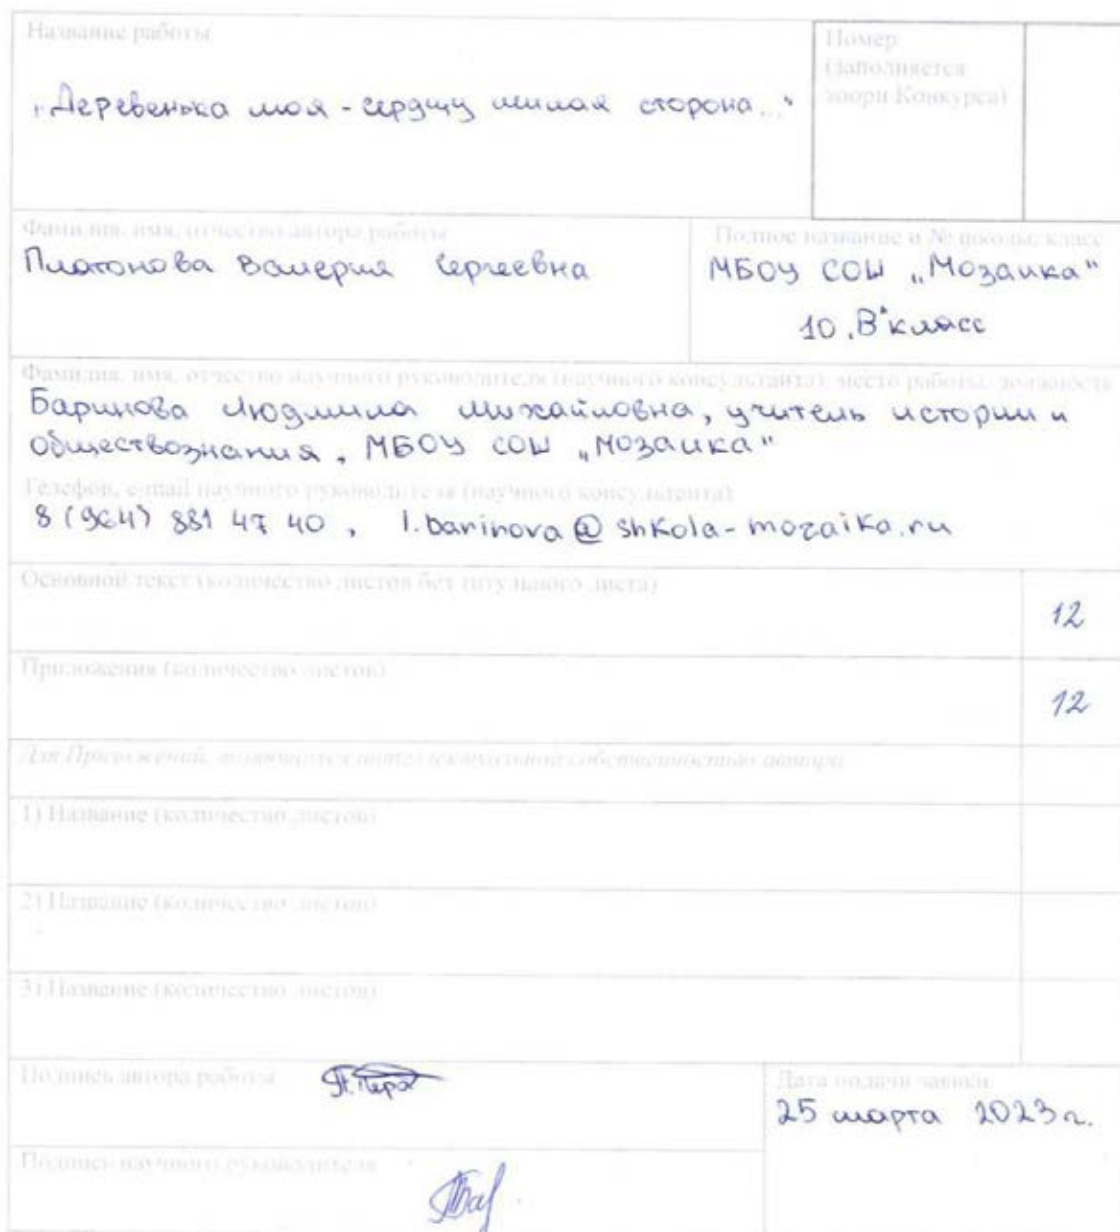 Название работы
„Деревенька моя - сердцу милая сторона..."
Номер
(заполняется
Конкурса)
Фамилия, имя, отчество автора работы
Платонова Валерия Сергеевна
Полное название и № школы, класс
МБОУ СОШ „Мозаика"
10 „В" класс
Фамилия, имя, отчество научного руководителя (научного консультанта), место работы, должность
Баринова Людмила Михайловна, учитель истории и
обществознания, МБОУ СОШ „Мозаика"
Телефон, e-mail научного руководителя (научного консультанта)
8 (964) 881 47 40, l.barinova@shkola-mozaika.ru
Основной текст (количество листов без титульного листа)
12
Приложения (количество листов)
12
Для Приложений, являющихся интеллектуальной собственностью автора
1) Название (количество листов)
2) Название (количество листов)
3) Название (количество листов)
Подпись автора работы
Дата подачи заявки
25 марта 2023 г.
Подпись научного руководителя